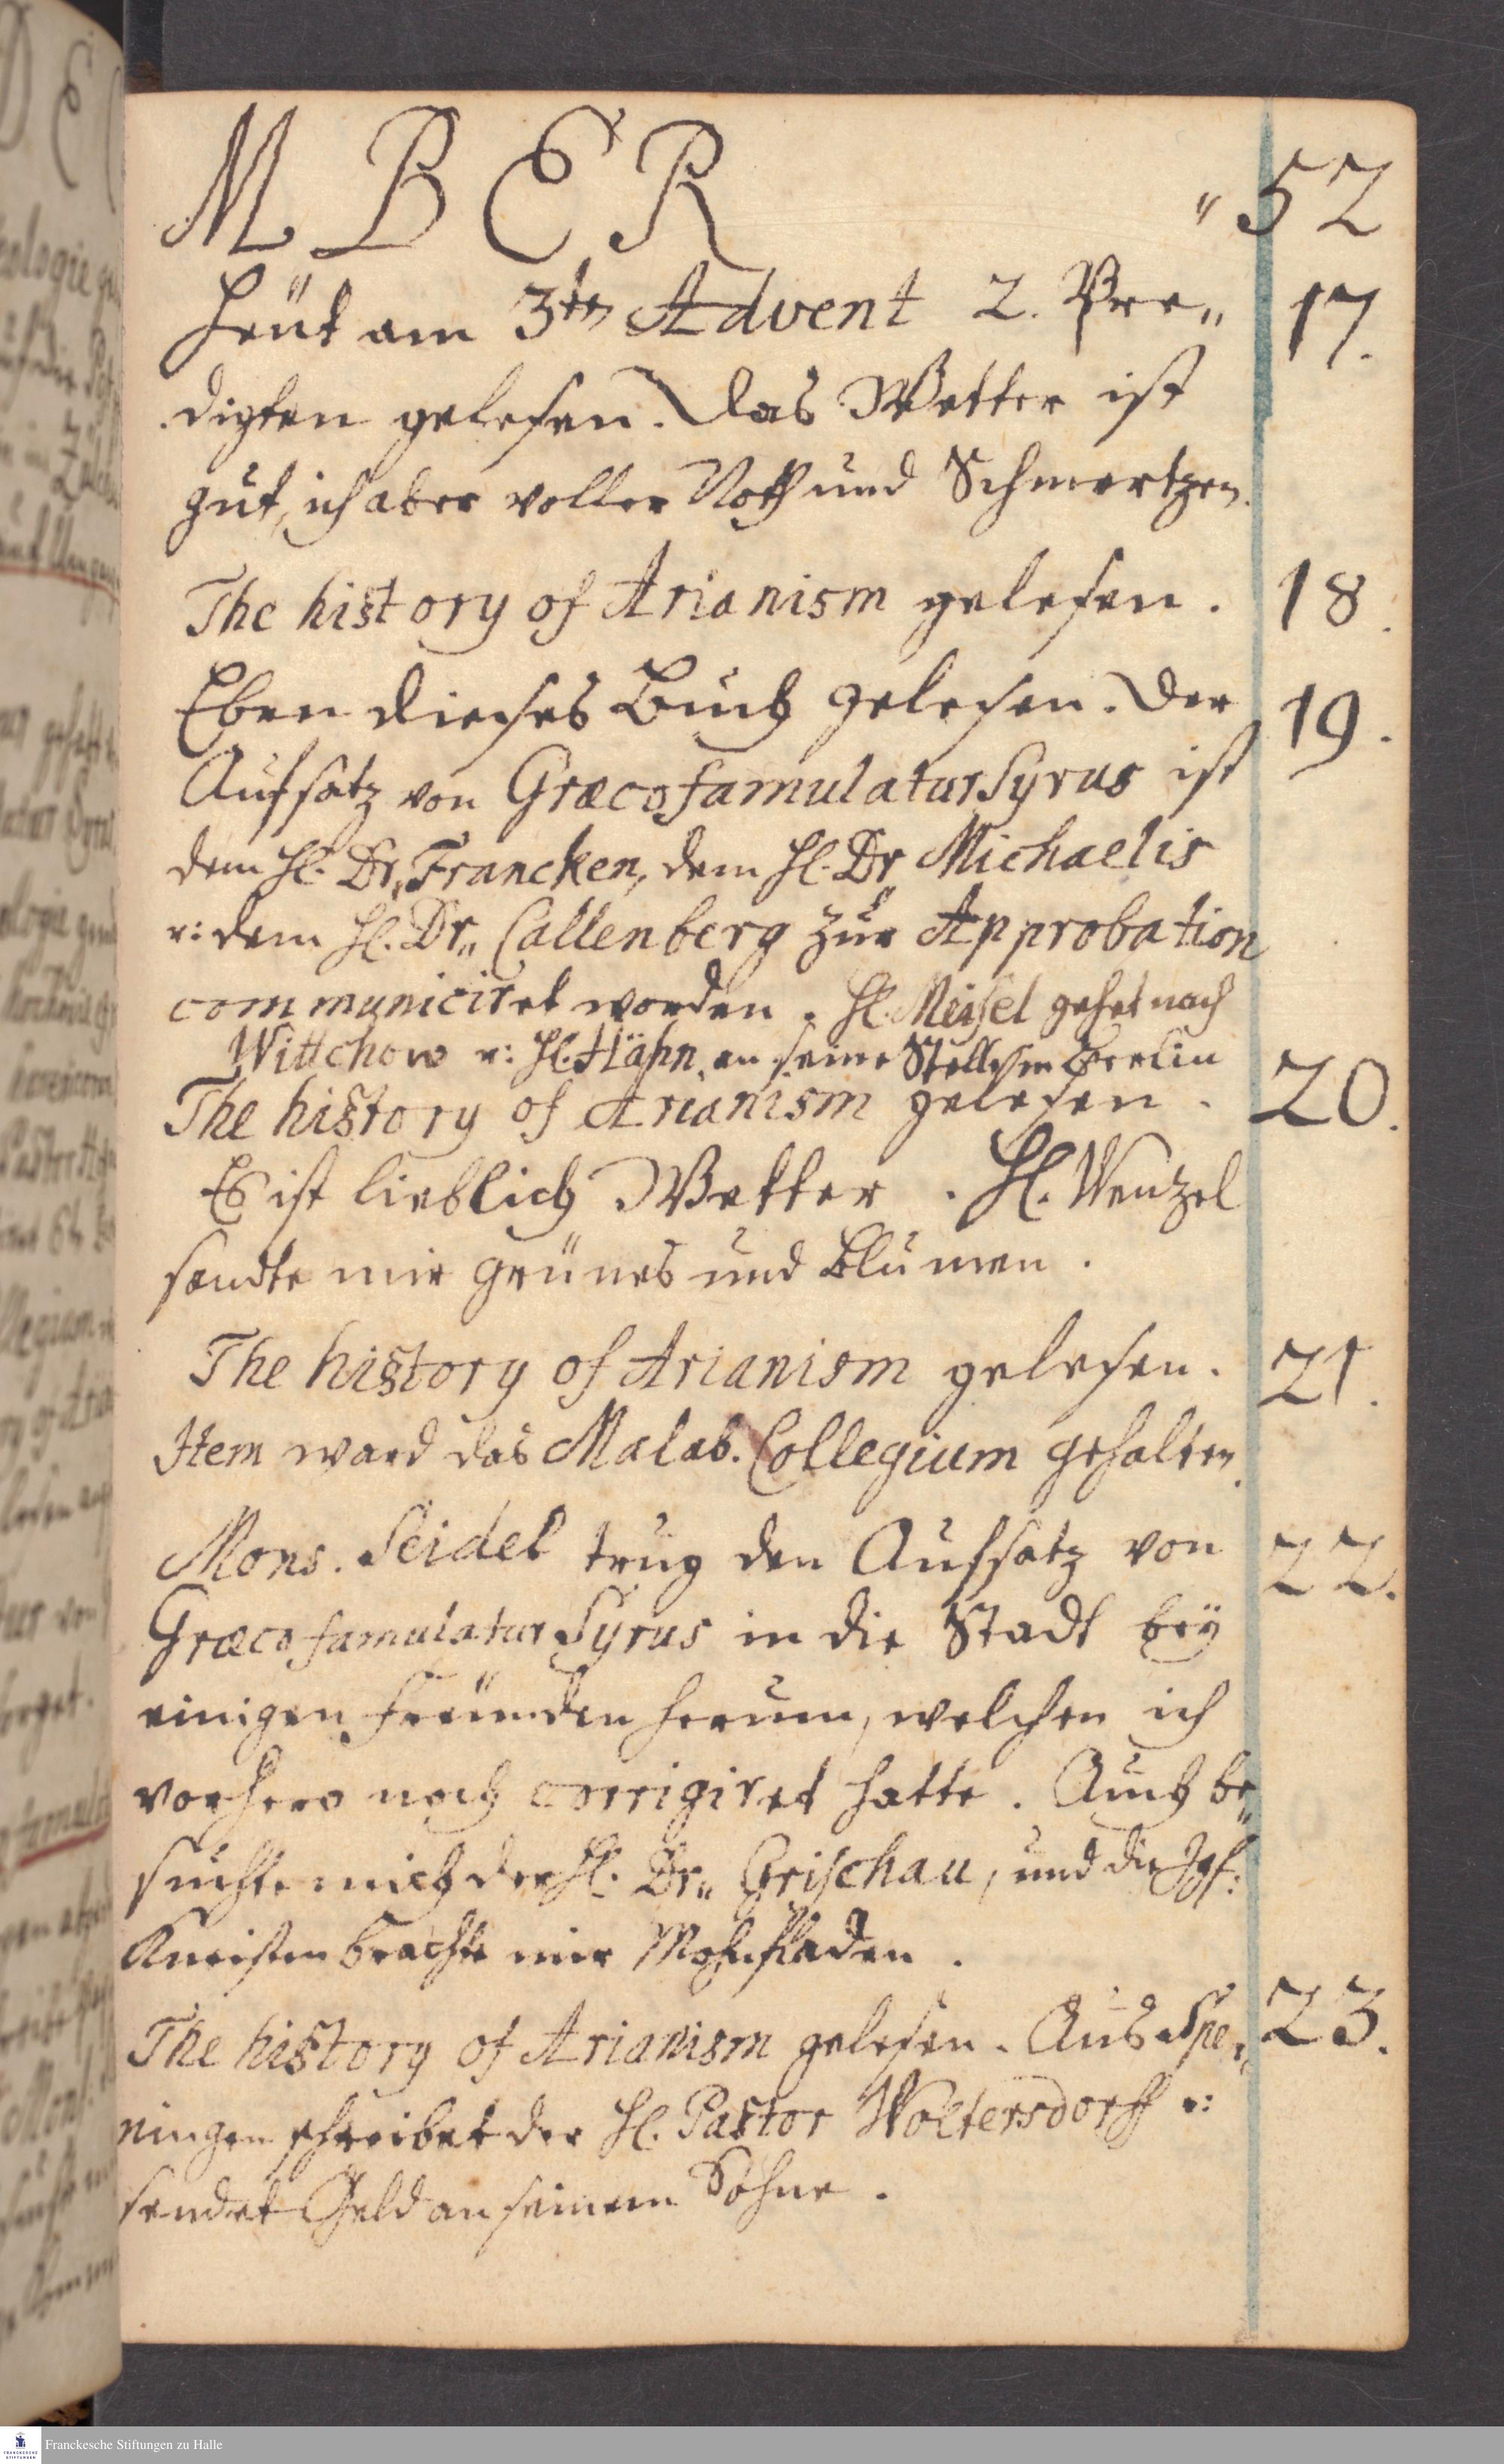 MBER „52
Heüt am 3ten Advent 2. Pre„ 17.
digten gelesen. Das Wetter ist
gut, ich aber voller Noth und Schmertzen.
The history of Arianism gelesen. 18.
Eben dieses Buch gelesen. Der 19.
Aufsatz von Græco famulatur Syrus ist
dem H. Dr„ Francken, dem H. Dr Michaelis
u: dem H. Dr„ Callenberg zur Approbation
communiciret worden. H. Meisel gehet nach
Wittchow u: H. Hähn an seine Stelle in Berlin
The history of Arianism gelesen. 20.
Es ist lieblich Wetter. H. Wenzel
sendte mir grünes und Blumen.
The history of Arianism gelesen. 21.
Item ward das Malab. Collegium gehalten.
Mons. Seidel trug den Aufsatz von 22.
Græco famulatur Syrus in die Stadt beÿ
einigen Freünden herum, welchen ich
vorhero noch corrigiret hatte. Auch be„
suchte mich der H. Dr„ Grischau, und die Jgf:
Kneisten brachte mir Mohnfladen.
The history of Arianism gelesen. Aus Spe„ 23.
ningen schreibet der H. Pastor Woltersdorff u:
sendet Geld an seinem Sohne.
Franckesche Stiftungen zu Halle